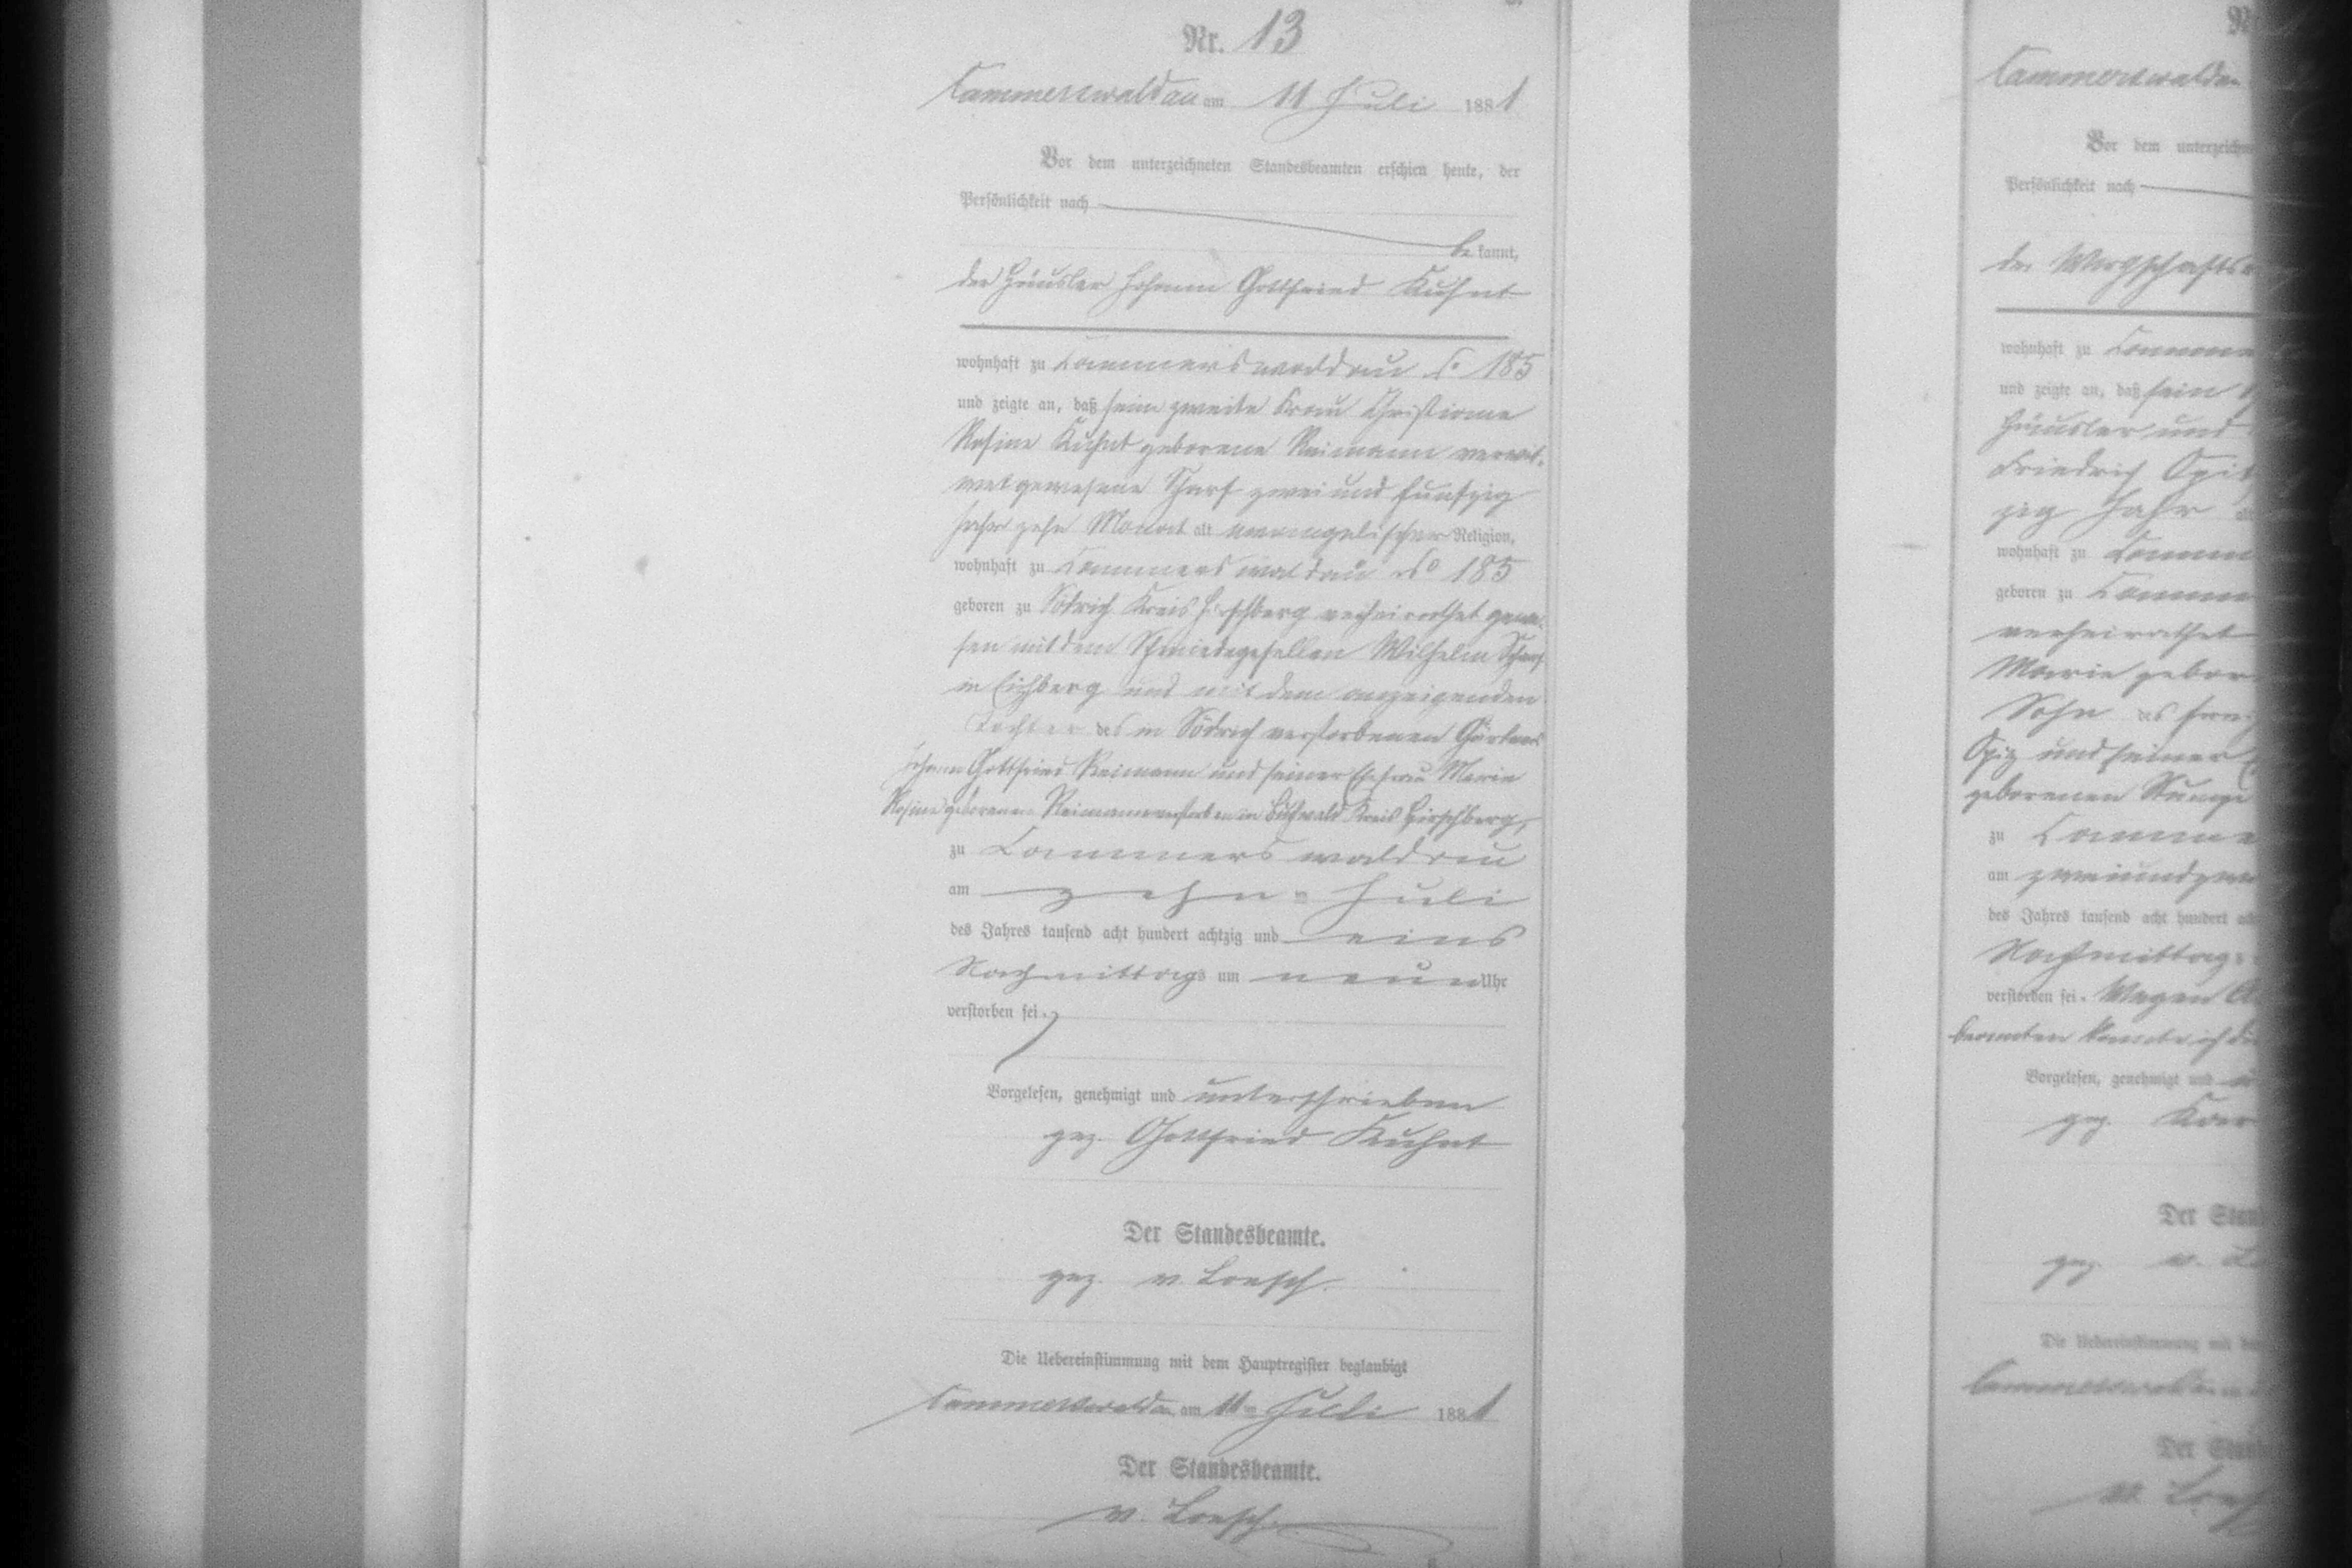 Nr. 13
Cammerswaldau am 11 Juli 1881
Vor dem unterzeichneten Standesbeamten erschien heute, der
Persönlichkeit nach
be kannt,
der Häusler Johann Gottfried Kuhnt
wohnhaft zu Cammerswaldau No 185
und zeigte an, daß seine zweite Frau Christiane
Rosine Kuhnt geborene Reimann verwit-
wet gewesene Scharf zwei und fünfzig
Jahr zehn Monat alt evangelischer Religion,
wohnhaft zu Cammerswaldau No 185
geboren zu Södrich Kreis Hirschberg verheirathet gewe-
sen mit dem Schmiedegesellen Wilhelm Scharf
in Eichberg und mit dem anzeigenden
Tochter des in Södrich verstorbenen Gärtners
Johann Gottfried Reimann und seiner Ehefrau Marie
Rosine geborenen Reimann verstorben in Buchwald Kreis Hirschberg,
zu Cammerswaldau
am zehn Juli
des Jahres tausend acht hundert achtzig und eins
Nachmittags um neun Uhr
verstorben sei.
Vorgelesen, genehmigt und unterschrieben
gez. Gottfried Kuhnt
Der Standesbeamte.
gez. v. Loesch.
Die Uebereinstimmung mit dem Hauptregister beglaubigt
Cammerswaldau am 11ten Juli 1881
Der Standesbeamte.
v. Loesch.
Cammerswaldau
Vor dem
Persönlichkeit nach
der
wohnhaft zu
und zeigte an, daß sein
Häusler und
Friedrich
zig Jahr
wohnhaft zu
geboren zu
verheirathet
Marie
Sohn des
und seiner
geborenen
zu
am
des Jahres tausend acht hundert
Nachmittags
verstorben sei. Wegen
Vorgelesen, genehmigt und
gez.
Der
gez. v.
Die Uebereinstimmung mit
Cammerswaldau
Der
v.